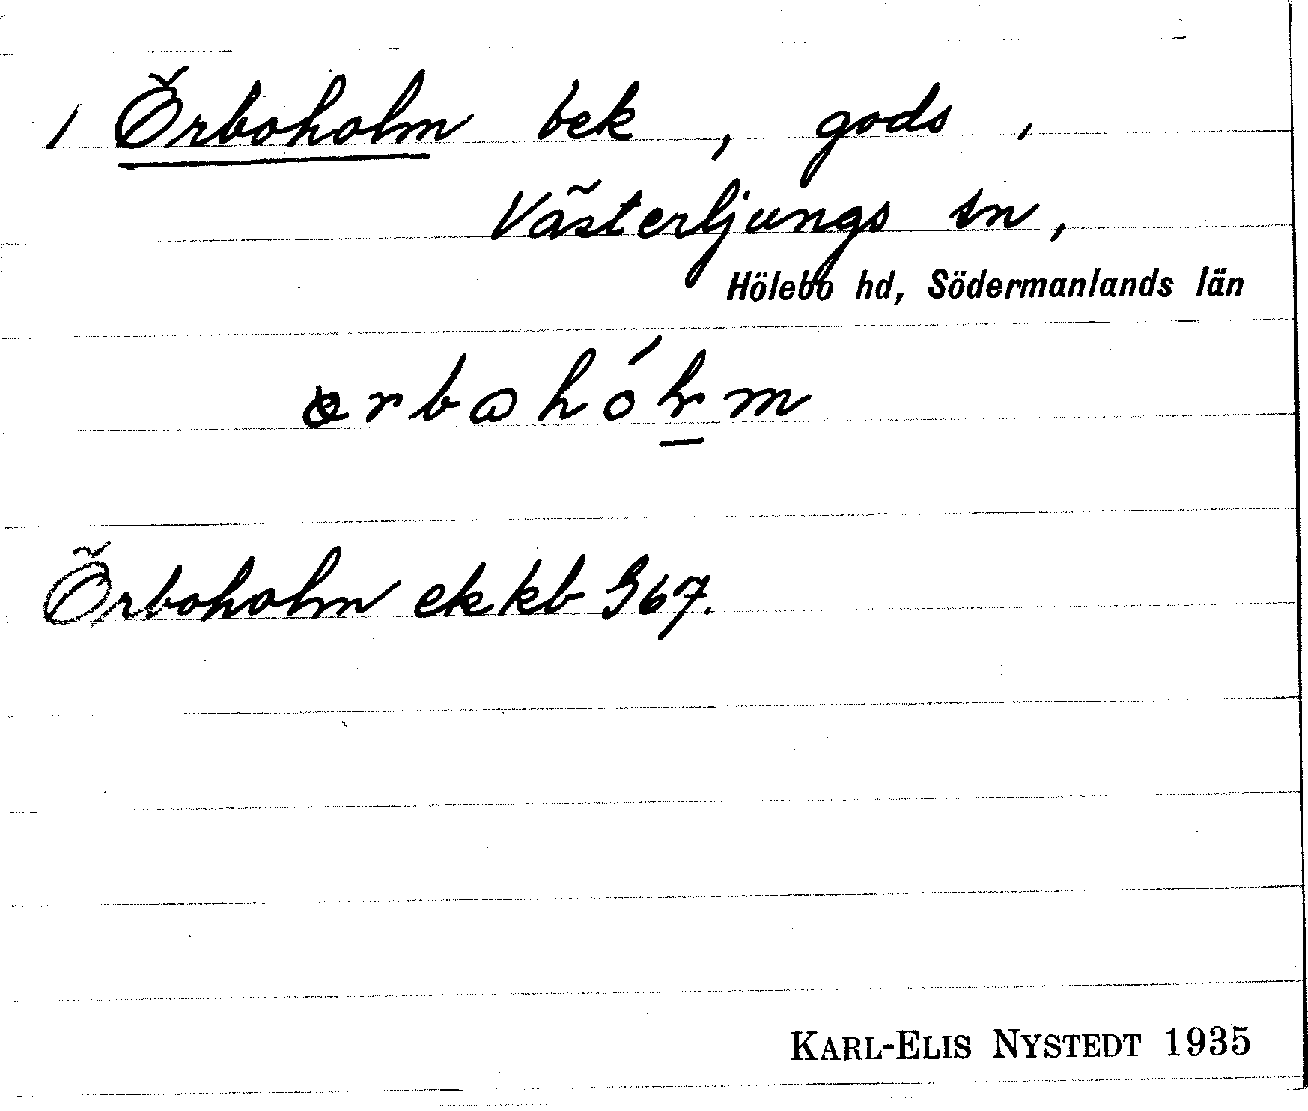 1 Örboholm bek, gods,
Västerljungs sn,
Hölebo hd, Södermanlands län
Örboholm ek kb J67.
KARL-ELIS NYSTEDT 1935